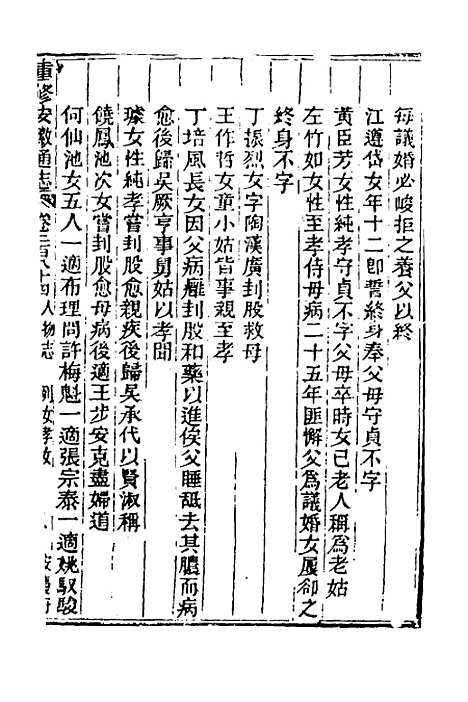 每議婚必峻拒之養父以終
江遵岱女年十二卽誓終身奉父母守貞不字
黃臣芳女性純孝守貞不字父母卒時女已老人稱爲老姑
左竹如女性至孝侍母病二十五年匪懈父爲議婚女屢卻之
終身不字
丁振烈女字陶漢廣刲股救母
王作哲女童小姑皆事親至孝
丁培風長女因父病癰刲股和藥以進俟父睡舐去其膿而病
愈後歸吴厥亨事舅姑以孝聞
璩女性純孝嘗刲股愈親疾後歸吴承代以賢淑稱
饒鳳池次女嘗刲股愈母病後適王步安克盡婦道
何仙池女五人一適布理問許梅魁一適張宗泰一適姚馭駿
重修安徽通志 卷三百八十四人物志 列女孝淑